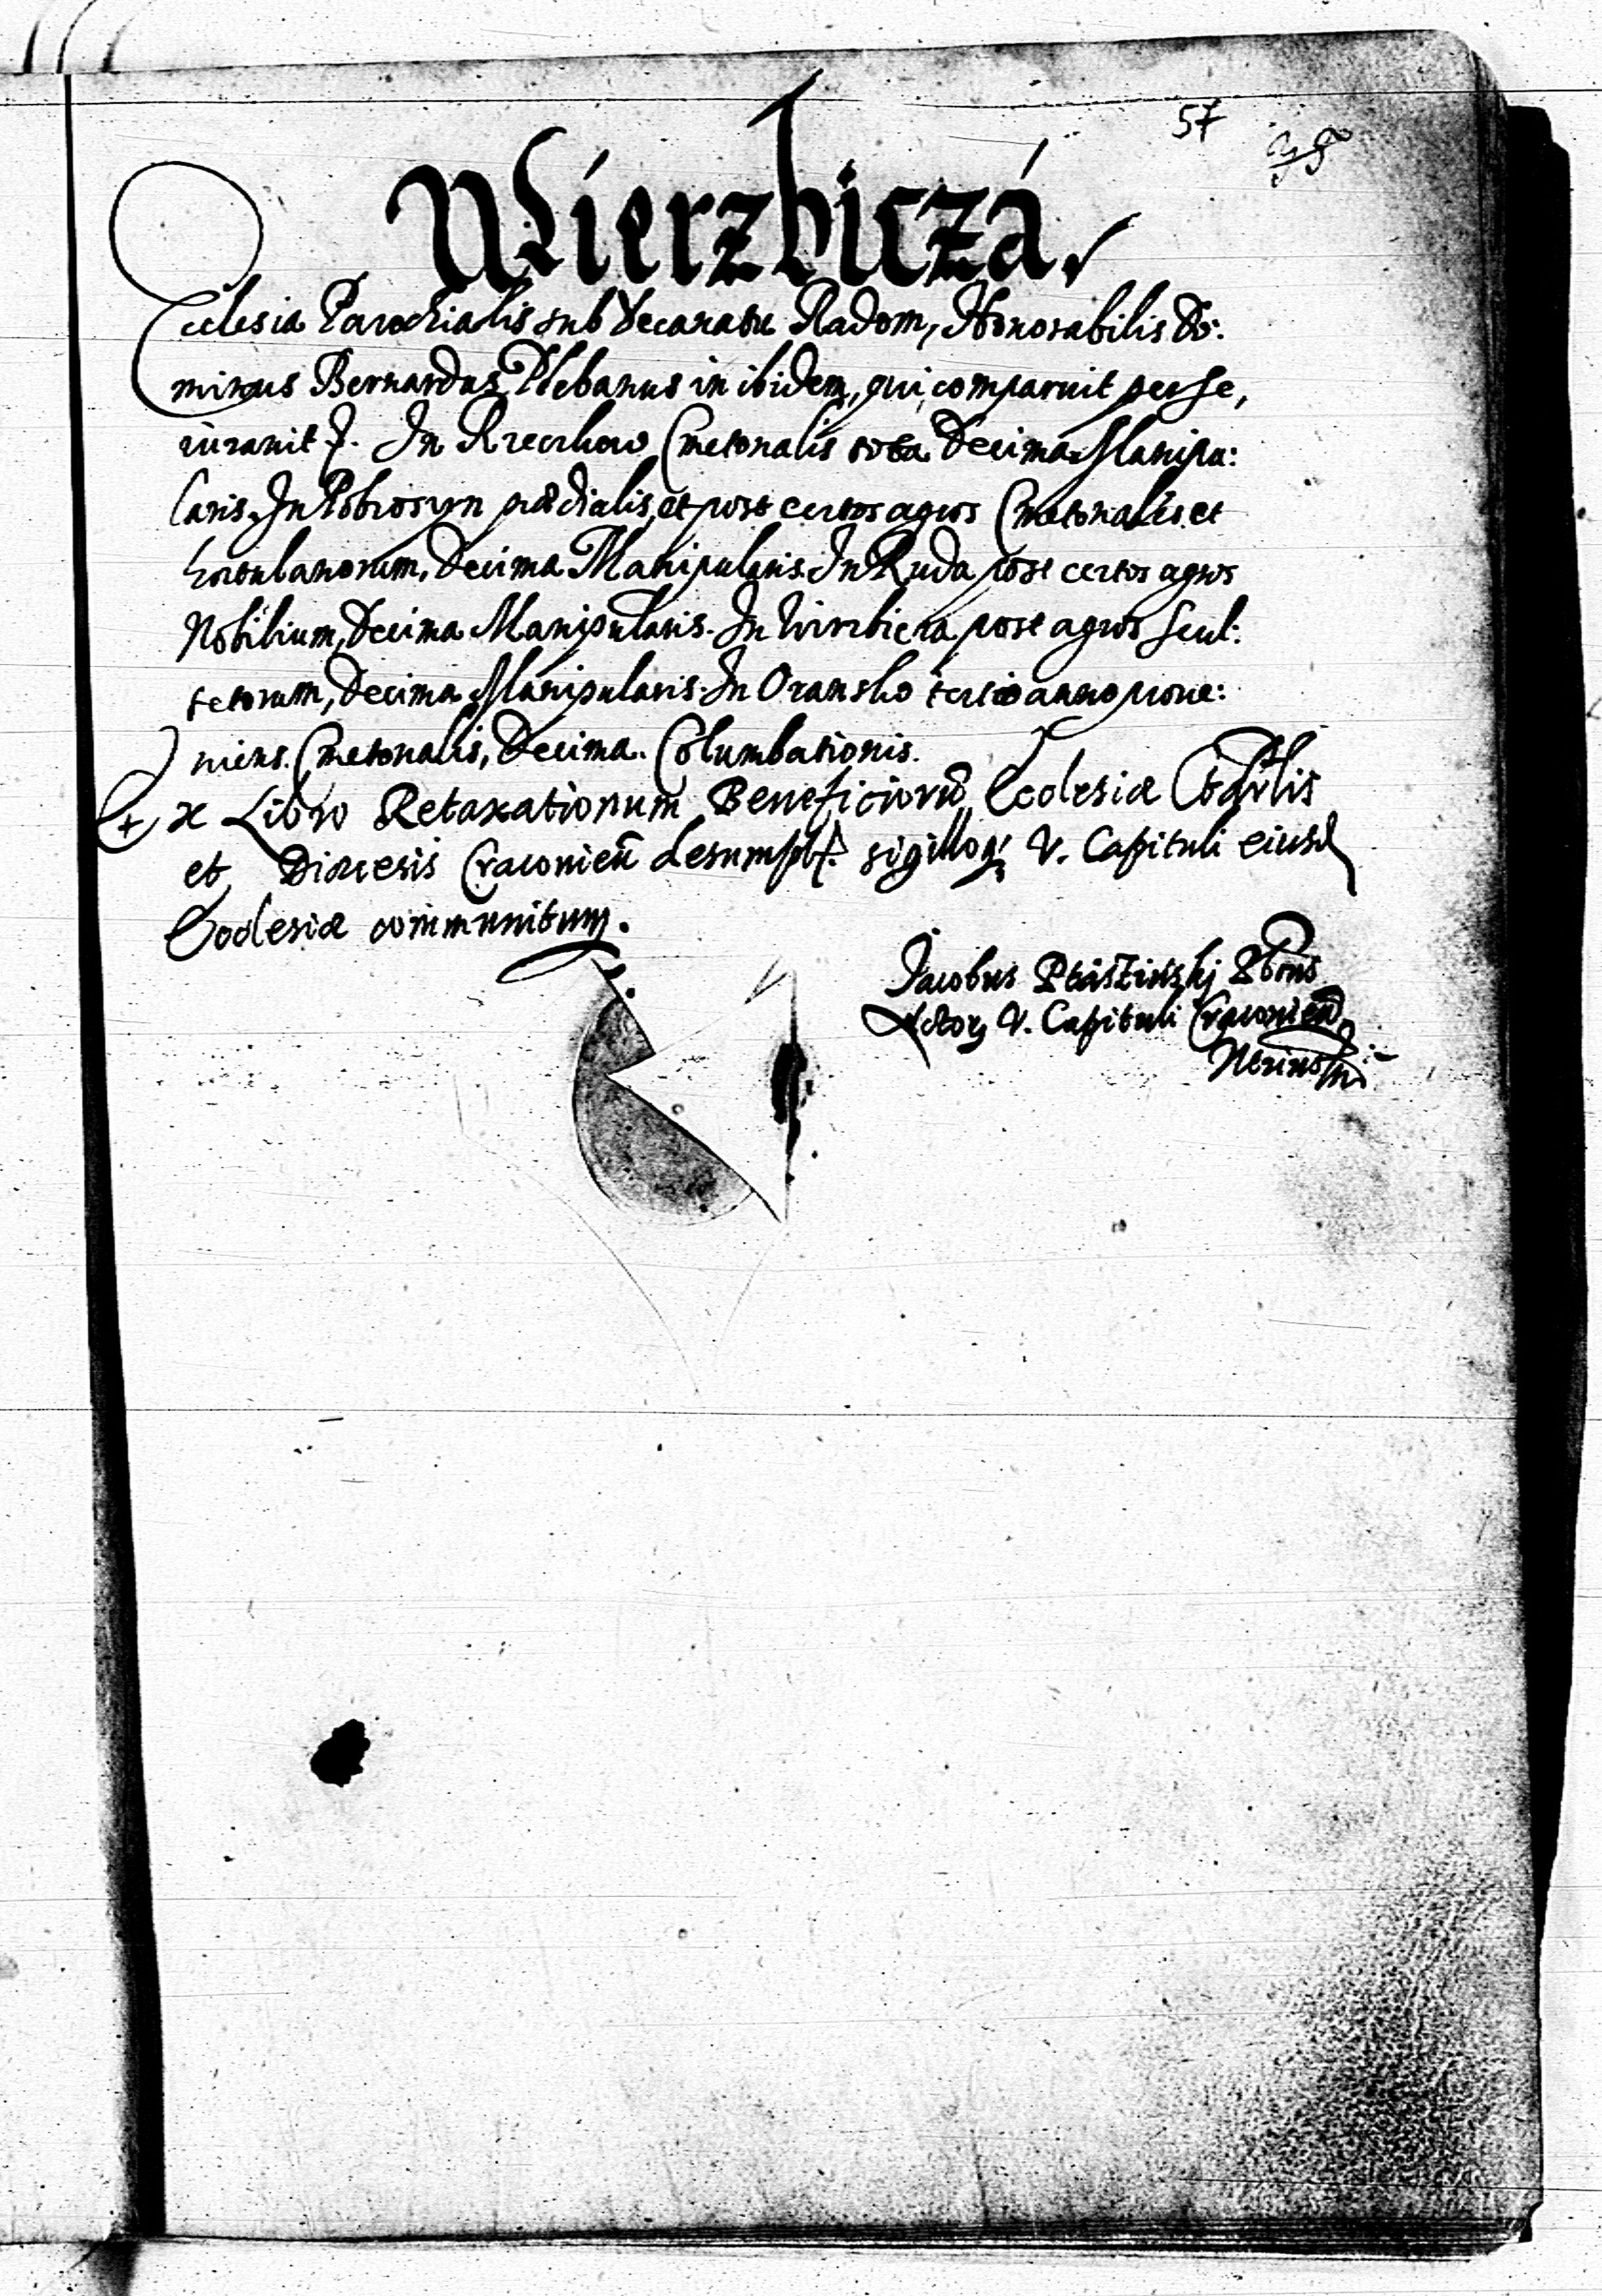 57
Wierzbiczá.
Ecclesia Parochialis sub Decanatu Radom, Honorabilis Do:
minus Bernardus Plebanus in ibidem, qui comparuit per se,
iurauit In Rzeczkow Cmetonalis tota Decima Manipu:
laris. In Pobrosyn prædialis, et post certos agros Cmetonales et
hortulanorum, Decima Manipularis. In Ruda post certos agros
Nobilium, Decima Manipularis. In Wirzbicza post agros Scul:
tetorum, Decima Manipularis. In Oransko tertio anno proue:
niens. Cmetonalis, Decima. Columbationis.
Ex Libro Retaxationum Beneficiorū Ecclesiæ Cathrlis
et Diæcesis Cracovień desumpt. sigilloq; V. Capituli eiusd
Ecclesiæ communitum.
Jacobus
Actor V. Capituli Cracovień